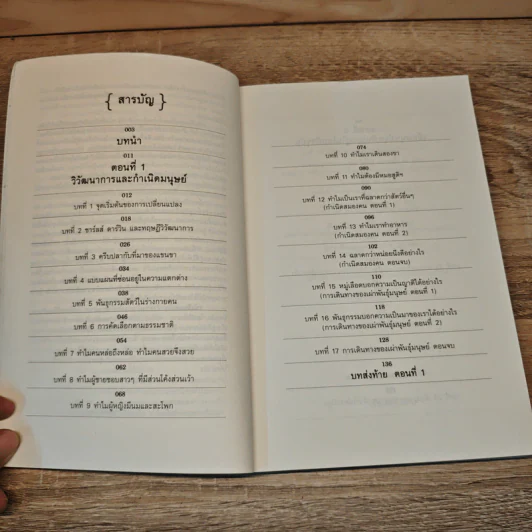 { สารบัญ }
005
บทนำ
011
ตอนที่ 1
วิวัฒนาการและกำเนิดมนุษย์
012
บทที่ 1 จุดเริ่มต้นของการเปลี่ยนแปลง
018
บทที่ 2 ชาร์ลส์ ดาร์วิน และทฤษฎีวิวัฒนาการ
026
บทที่ 3 ครีบปลากับที่มาของแขนขา
034
บทที่ 4 แบบแผนที่ซ่อนอยู่ในความแตกต่าง
038
บทที่ 5 พันธุกรรมสัตว์ในร่างกายคน
046
บทที่ 6 การคัดเลือกตามธรรมชาติ
054
บทที่ 7 ทำไมคนหล่อถึงหล่อ ทำไมคนสวยจึงสวย
062
บทที่ 8 ทำไมผู้ชายชอบสาวๆ ที่มีส่วนโค้งส่วนเว้า
068
บทที่ 9 ทำไมผู้หญิงมีนมและสะโพก
074
บทที่ 10 ทำไมเราเดินสองขา
080
บทที่ 11 ทำไมต้องมีหมอสูติฯ
090
บทที่ 12 ทำไมเป็นเราที่ฉลาดกว่าสัตว์อื่นๆ
(กำเนิดสมองคน ตอนที่ 1)
096
บทที่ 13 ทำไมเราทำอาหาร
(กำเนิดสมองคน ตอนที่ 2)
102
บทที่ 14 ฉลาดกว่าหน่อยนึงดีอย่างไร
(กำเนิดสมองคน ตอนจบ)
110
บทที่ 15 หมู่เลือดบอกความเป็นญาติได้อย่างไร
(การเดินทางของเผ่าพันธุ์มนุษย์ ตอนที่ 1)
118
บทที่ 16 พันธุกรรมบอกความเป็นมาของเราได้อย่างไร
(การเดินทางของเผ่าพันธุ์มนุษย์ ตอนที่ 2)
128
บทที่ 17 การเดินทางของเผ่าพันธุ์มนุษย์ ตอนจบ
136
บทส่งท้าย ตอนที่ 1